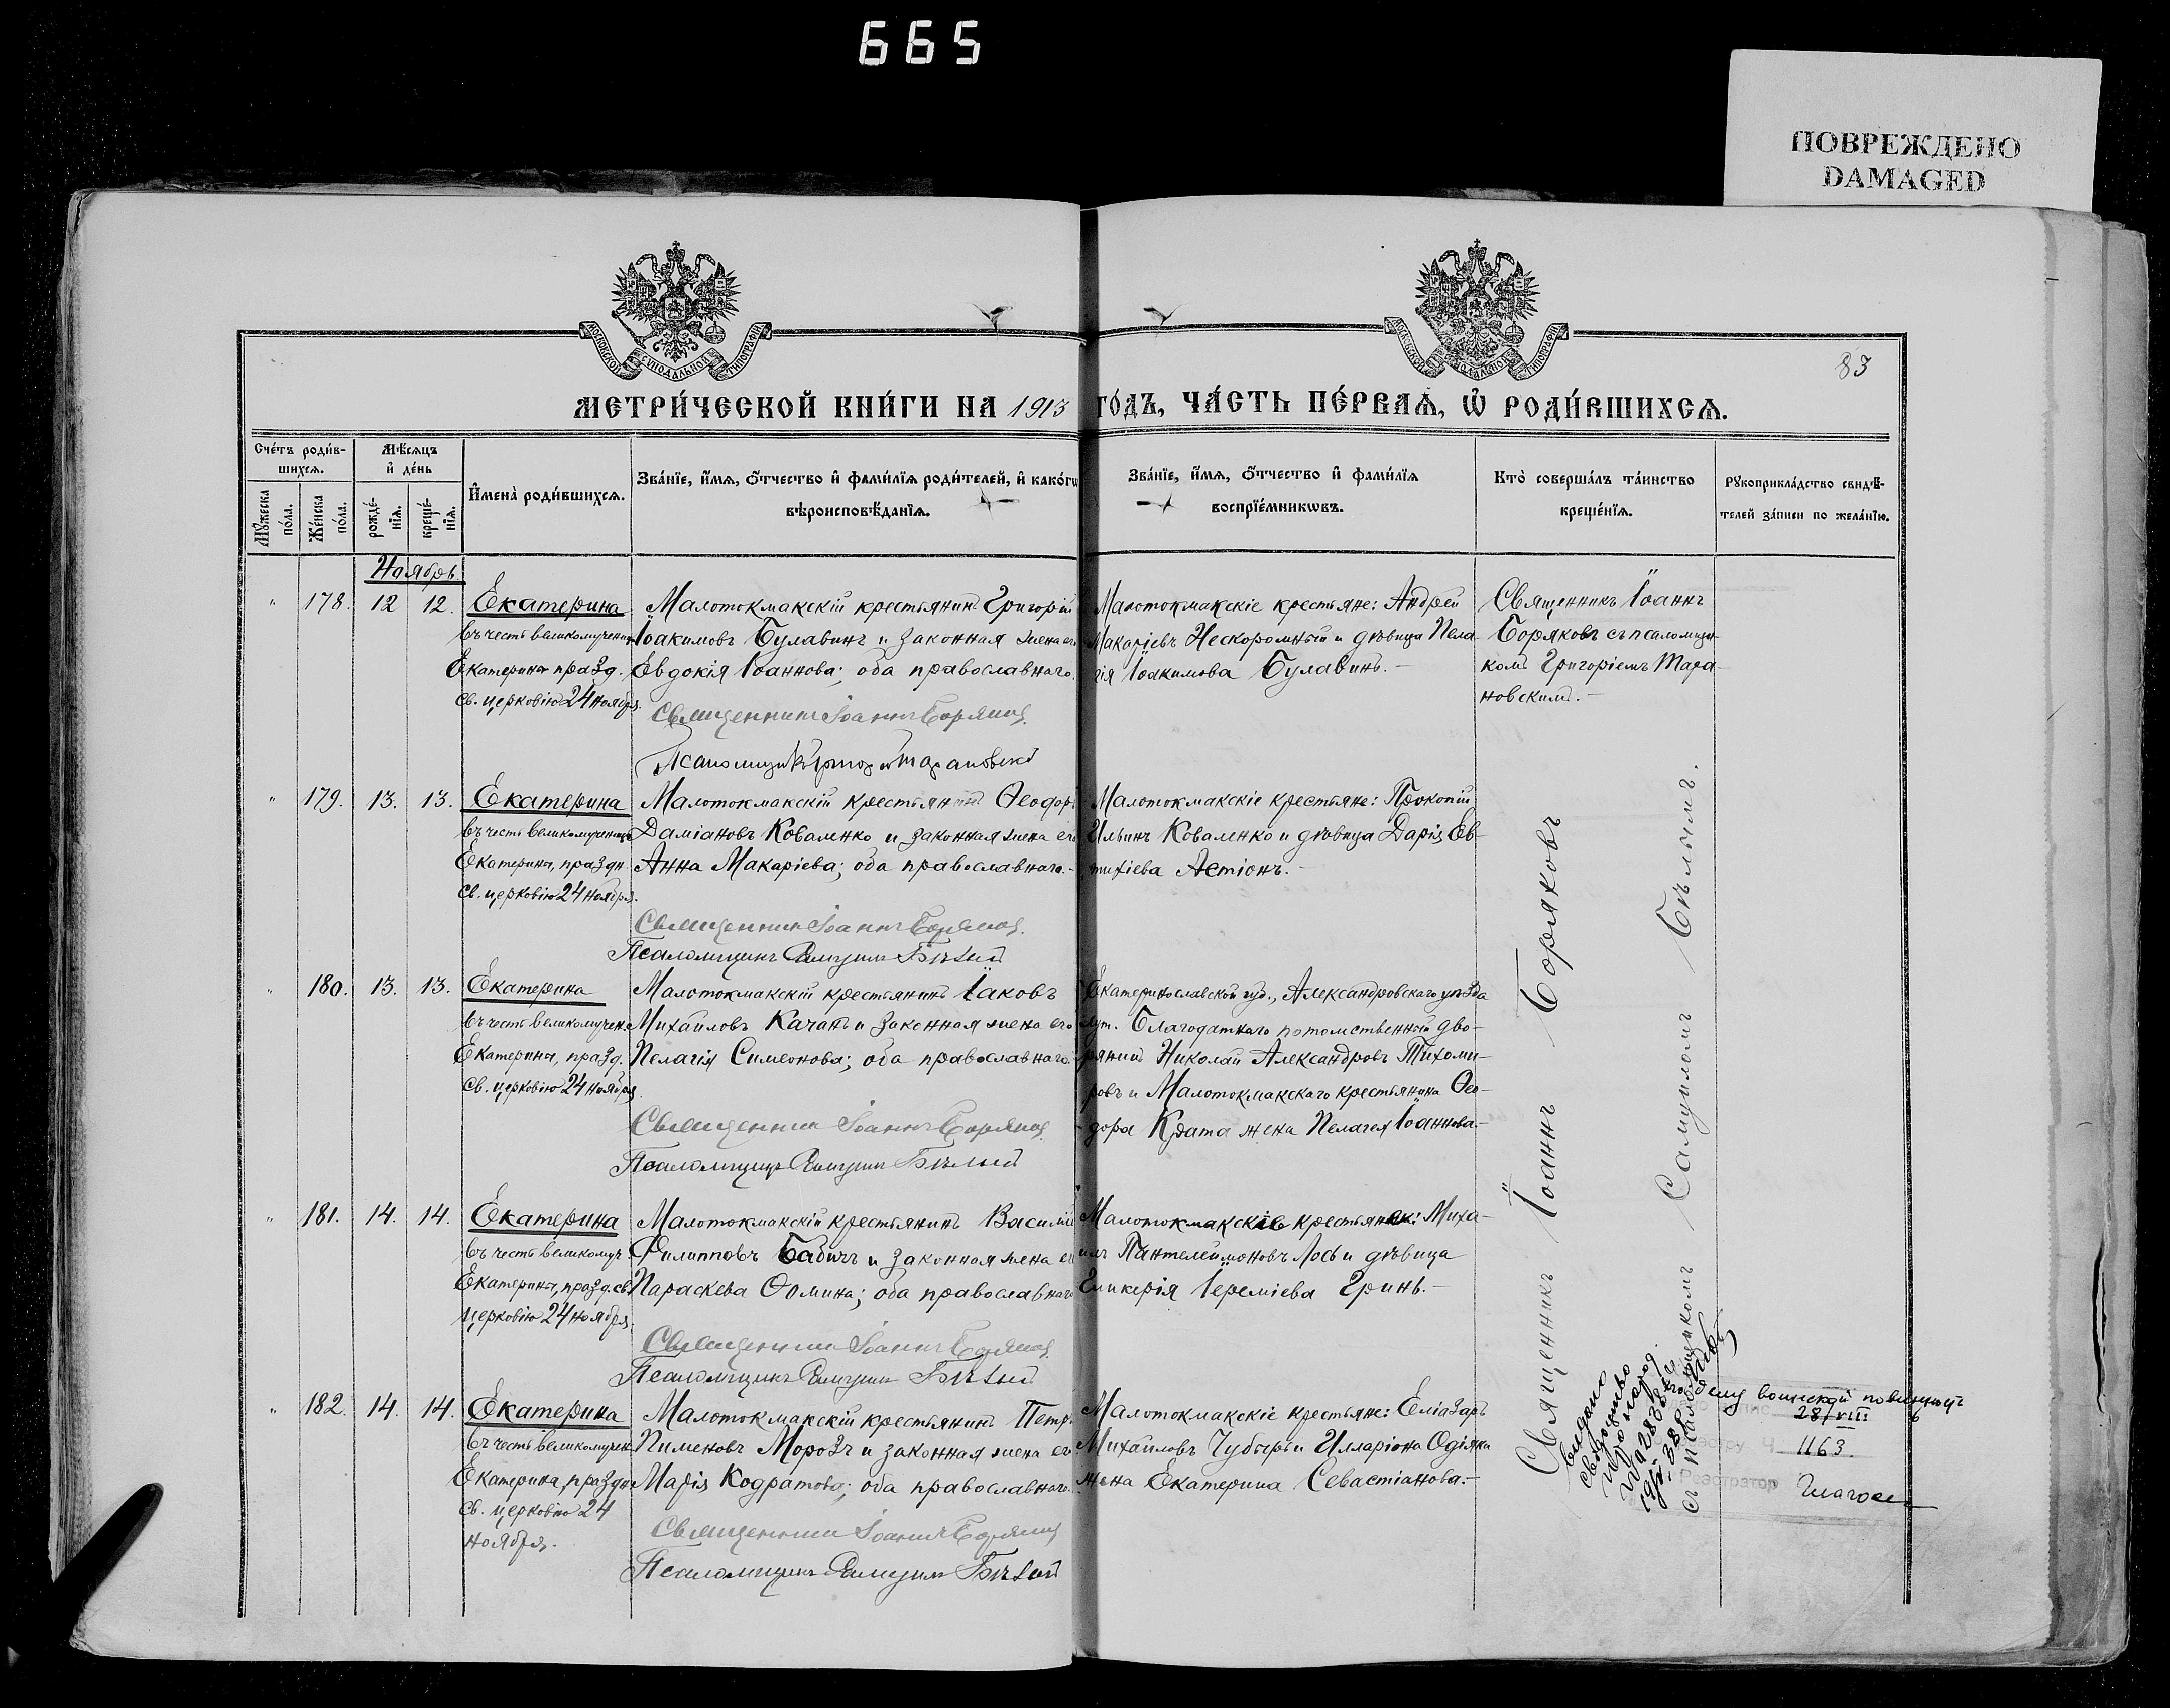 665
ПОВРЕЖДЕНО
DAMAGED
83
МЕТРИ́ЧЕСКОЙ КНИ́ГИ НА 1913 ГО́ДЪ, ЧА́СТЬ ПЕ́РВАѦ, Ѡ РОДИ́ВШИХСѦ.
Сче́тъ роди́в-
шихсѧ.
Мѣ́сѧцъ
и де́нь
Мꙋ́жеска
по́ла.
Же́нска
по́ла.
рожде́-
нїѧ.
креще́-
нїѧ.
Имена̀ роди́вшихсѧ.
Зва́нїе, и́мѧ, о́тчество и фами́лїѧ роди́телей, и како́гѡ
вѣроисповѣ́данїѧ.
Зва́нїе, и́мѧ, о́тчество и фами́лїѧ
воспрїе́мникѡвъ.
Кто̀ соверша́лъ та́инство
креще́нїѧ.
Рꙋкоприкла́дство свидѣ́-
телей за́писи по жела́нїю.
Ноябрь
" 178. 12 12. Екатерина
въ честь великомучениц
Екатерины празд.
св. церковію 24 ноября.
Малотокмакскій крестьянинъ Григорій
Іоакимовъ Булавинъ и законная жена его
Евдокія Іоаннова; оба православнаго.
Священникъ Іоаннъ Боряковъ
Псаломщикъ Григорій Тарановскій
Малотокмакскіе крестьяне: Андрей
Макаріевъ Нескоромный и дѣвица Пела-
гія Іоакимова Булавинъ.-
Священникъ Іоаннъ
Боряковъ съ псаломщи-
комъ Григоріемъ Тара-
новскимъ.-
" 179. 13. 13. Екатерина
въ честь великомученицы
Екатерины, праздн.
св. церковію 24 ноября.
Малотокмакскій крестьянинъ Ѳеодоръ
Даміановъ Коваленко и законная жена его
Анна Макаріева; оба православнаго.-
Священникъ Іоаннъ Боряковъ
Псаломщикъ Самуилъ Бѣлый
Малотокмакскіе крестьяне: Прокопій
Ильинъ Коваленко и дѣвица Дарія Ев-
тихіева Астіонъ.-
" 180. 13. 13. Екатерина
въ честь великомучен.
Екатерины, празд.
св. церковію 24 ноября
Малотокмакскій крестьянинъ Іаковъ
Михайловъ Качанъ и законная жена его
Пелагія Симеонова; оба православнаго.
Священникъ Іоаннъ Боряковъ
Псаломщикъ Самуилъ Бѣлый
Екатеринославской губ., Александровскаго уѣзда
хут. Благодатнаго потомственный дво-
рянинъ Николай Александровъ Тихоми-
ровъ и Малотокмакскаго крестьянина Ѳео-
дора Крата жена Пелагея Іоаннова.-
" 181. 14. 14. Екатерина
въ честь великомуч.
Екатерины, празд. св.
церковію 24 ноября.
Малотокмакскій крестьянинъ Василій
Филипповъ Бабичъ и законная жена его
Параскева Ѳомина; оба православнаго
Священникъ Іоаннъ Боряковъ
Псаломщикъ Самуилъ Бѣлый
Малотокмакскіе крестьяне: Миха-
илъ Пантелеимоновъ Лось и дѣвица
Гликерія Іереміева Гринь.-
" 182. 14. 14. Екатерина
въ честь великомучен.
Екатерины, праздн
св. церковію 24
ноября.
Малотокмакскій крестьянинъ Петръ
Пименовъ Морозъ и законная жена его
Марія Кодратова; оба православнаго.
Священникъ Іоаннъ Боряковъ
Псаломщикъ Самуилъ Бѣлый
Малотокмакскіе крестьяне: Еліазаръ
Михайловъ Чубырь и Илларіона Одіяна
жена Екатерина Севастіанова.-
Священникъ Іоаннъ Боряковъ
съ псаломщикомъ Самуиломъ Бѣлымъ.
Видано
свідоцтво
про народ.
воинской повинност
28/VIII
1163
Реєстратор